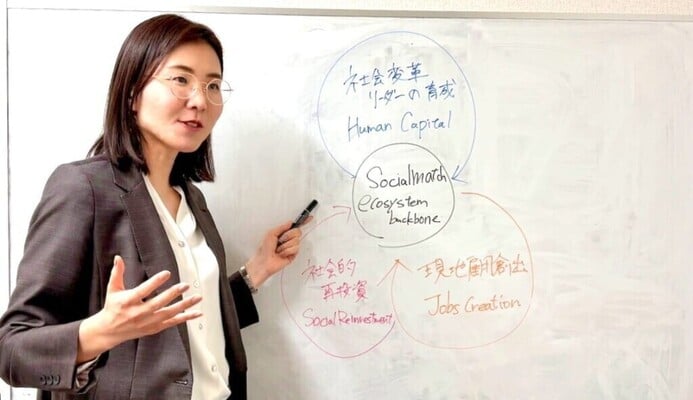 社会変革
リーダーの育成
Human Capital
Socialmatch
ecosystem
backbone
社会的
再投資
Social Reinvestment
現地雇用創出
Jobs Creation